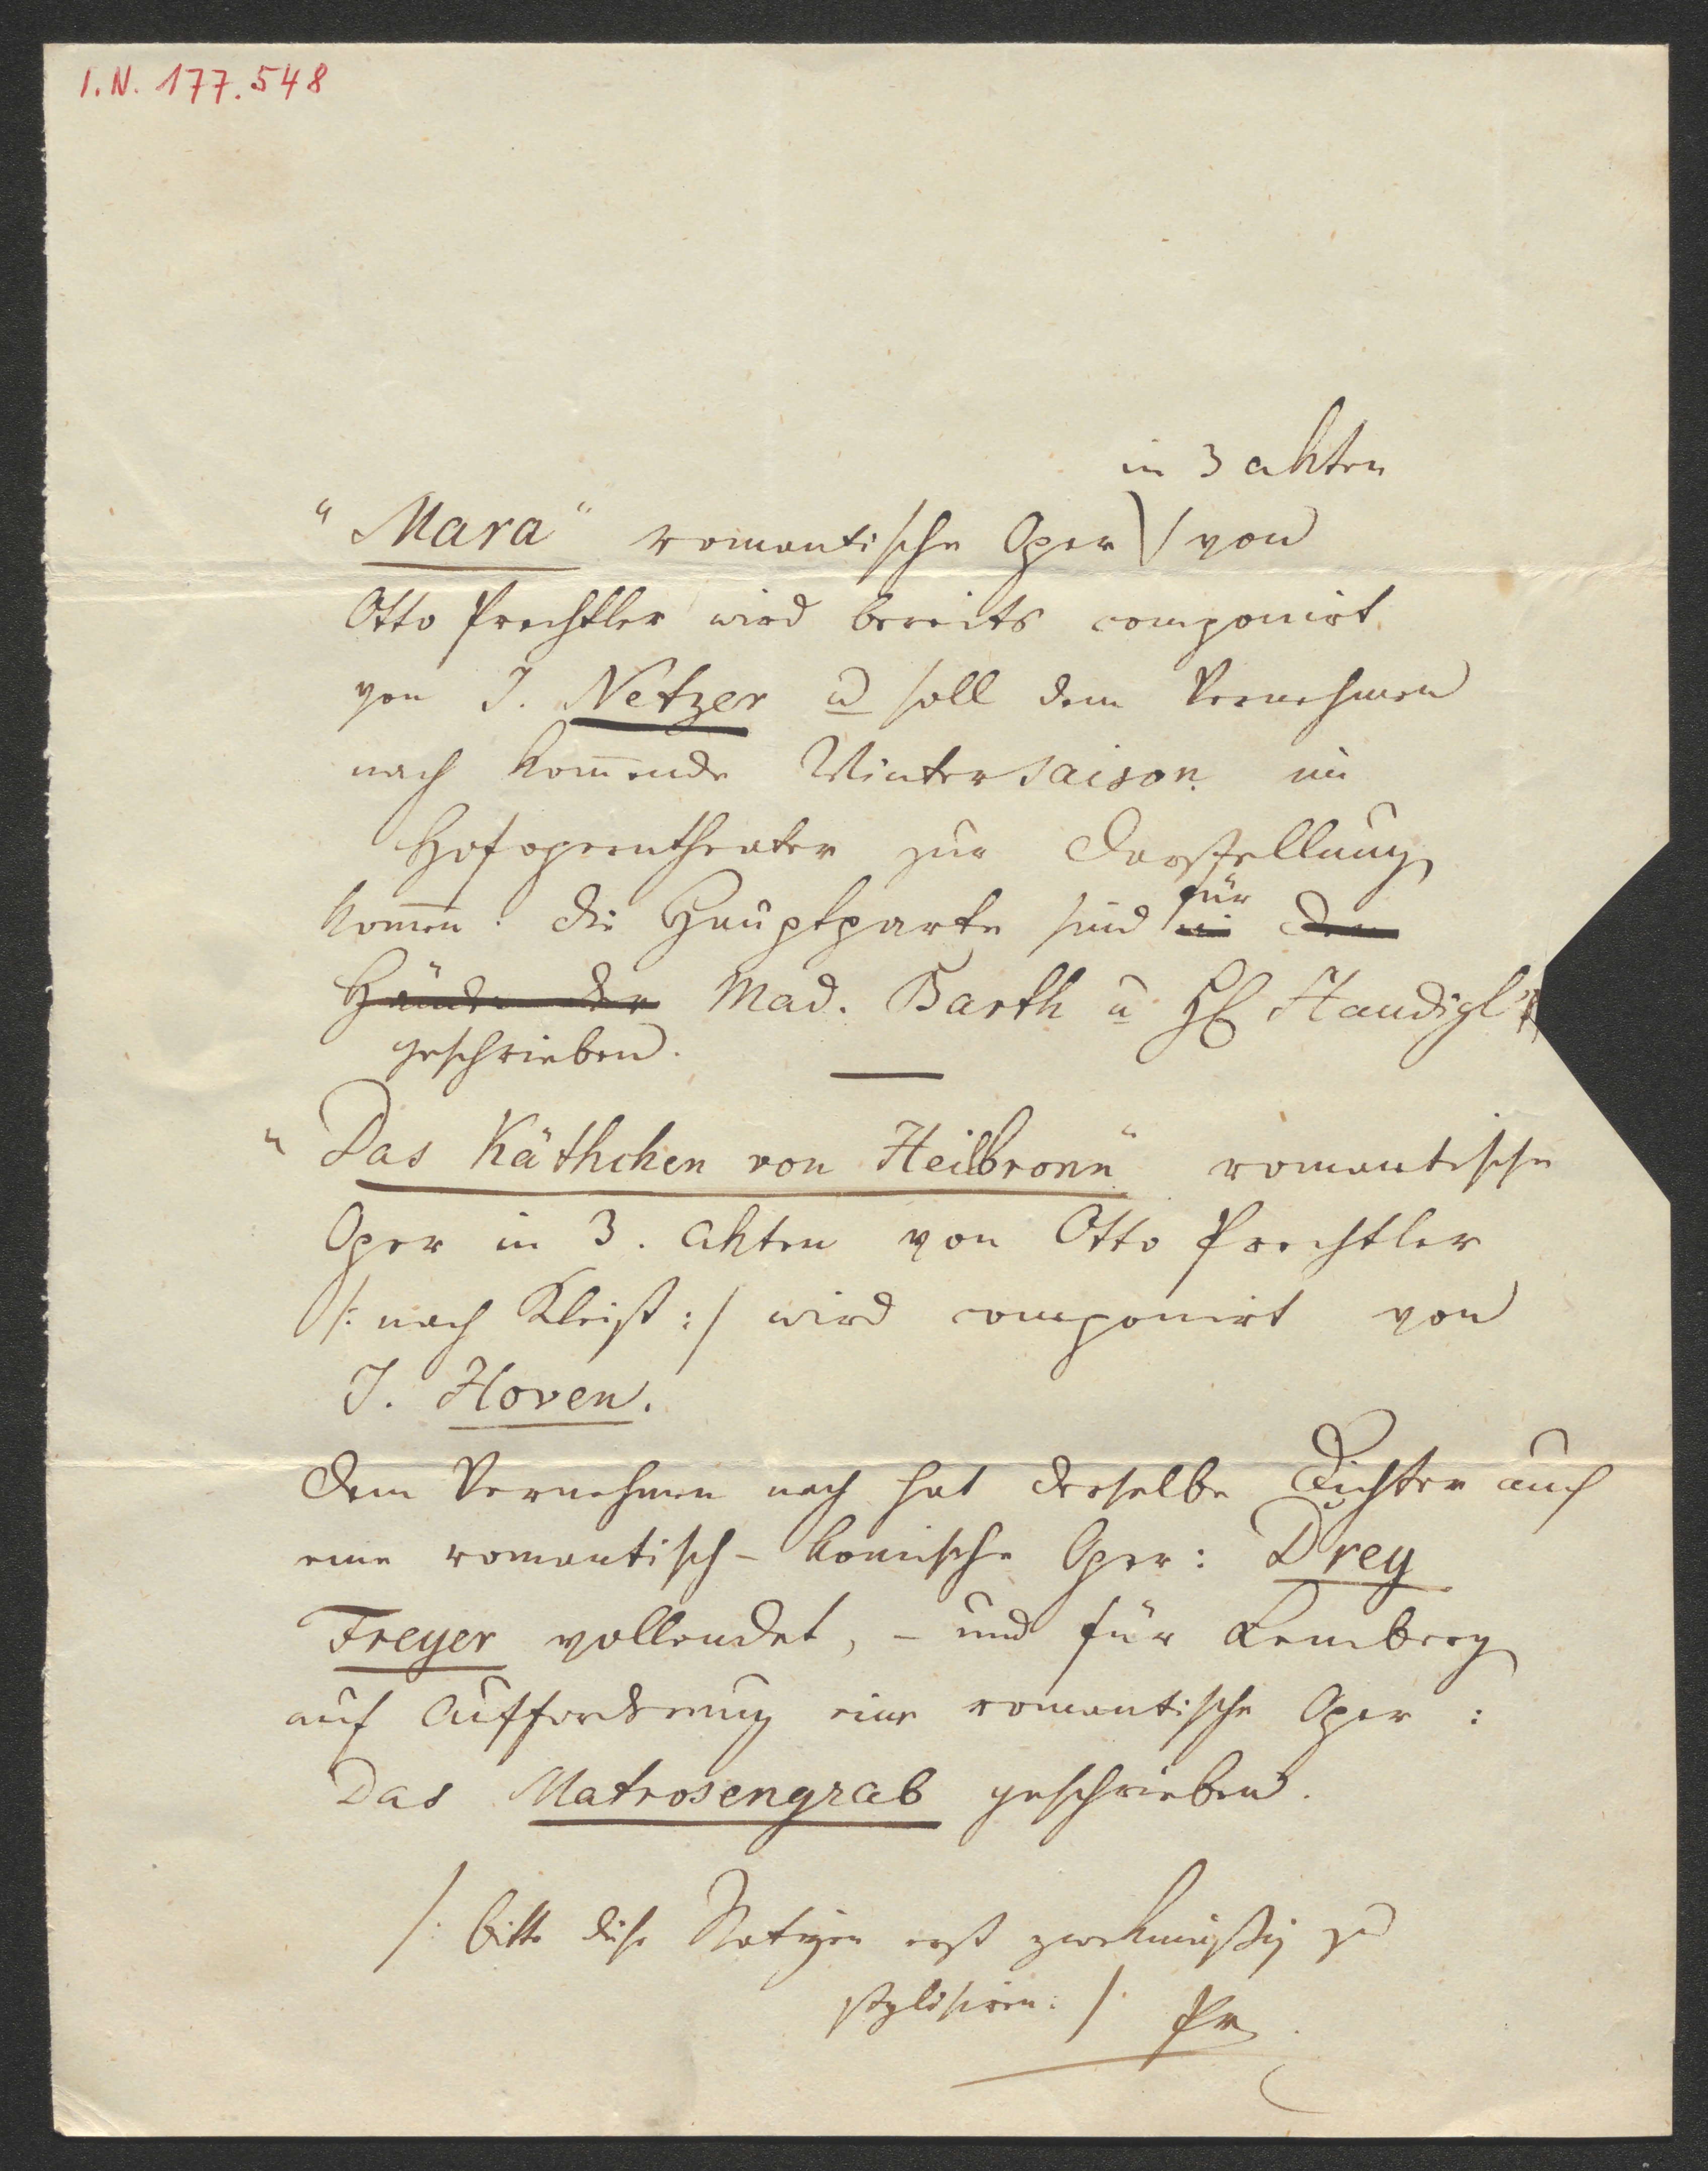 I.N. 177.548
in 3 Akten
"Mara" romantische Oper von
Otto Prechtler wird bereits componirt
von J. Netzer u soll dem Vernehmen
nach kom̄ende Wintersaison im
Hofoperntheater zur Darstellung
kom̄en. Die Hauptparte sind in den
für
Hände der Mad. Barth u H Staudigl
geschrieben.
"Das Käthchen von Heilbronn" romantische
Oper in 3. Akten von Otto Prechtler
/: nach Kleist :/ wird componirt von
J. Hoven.
Dem Vernehmen nach hat derselbe Dichter auch
eine romantisch-komische Oper: Drey
Freyer vollendet, – und für Lemberg
auf Aufforderung eine romantische Oper :
Das Matrosengrab geschrieben.
/: bitte diese Notizen erst zwekmäßig zu
stylisiren: / Pr